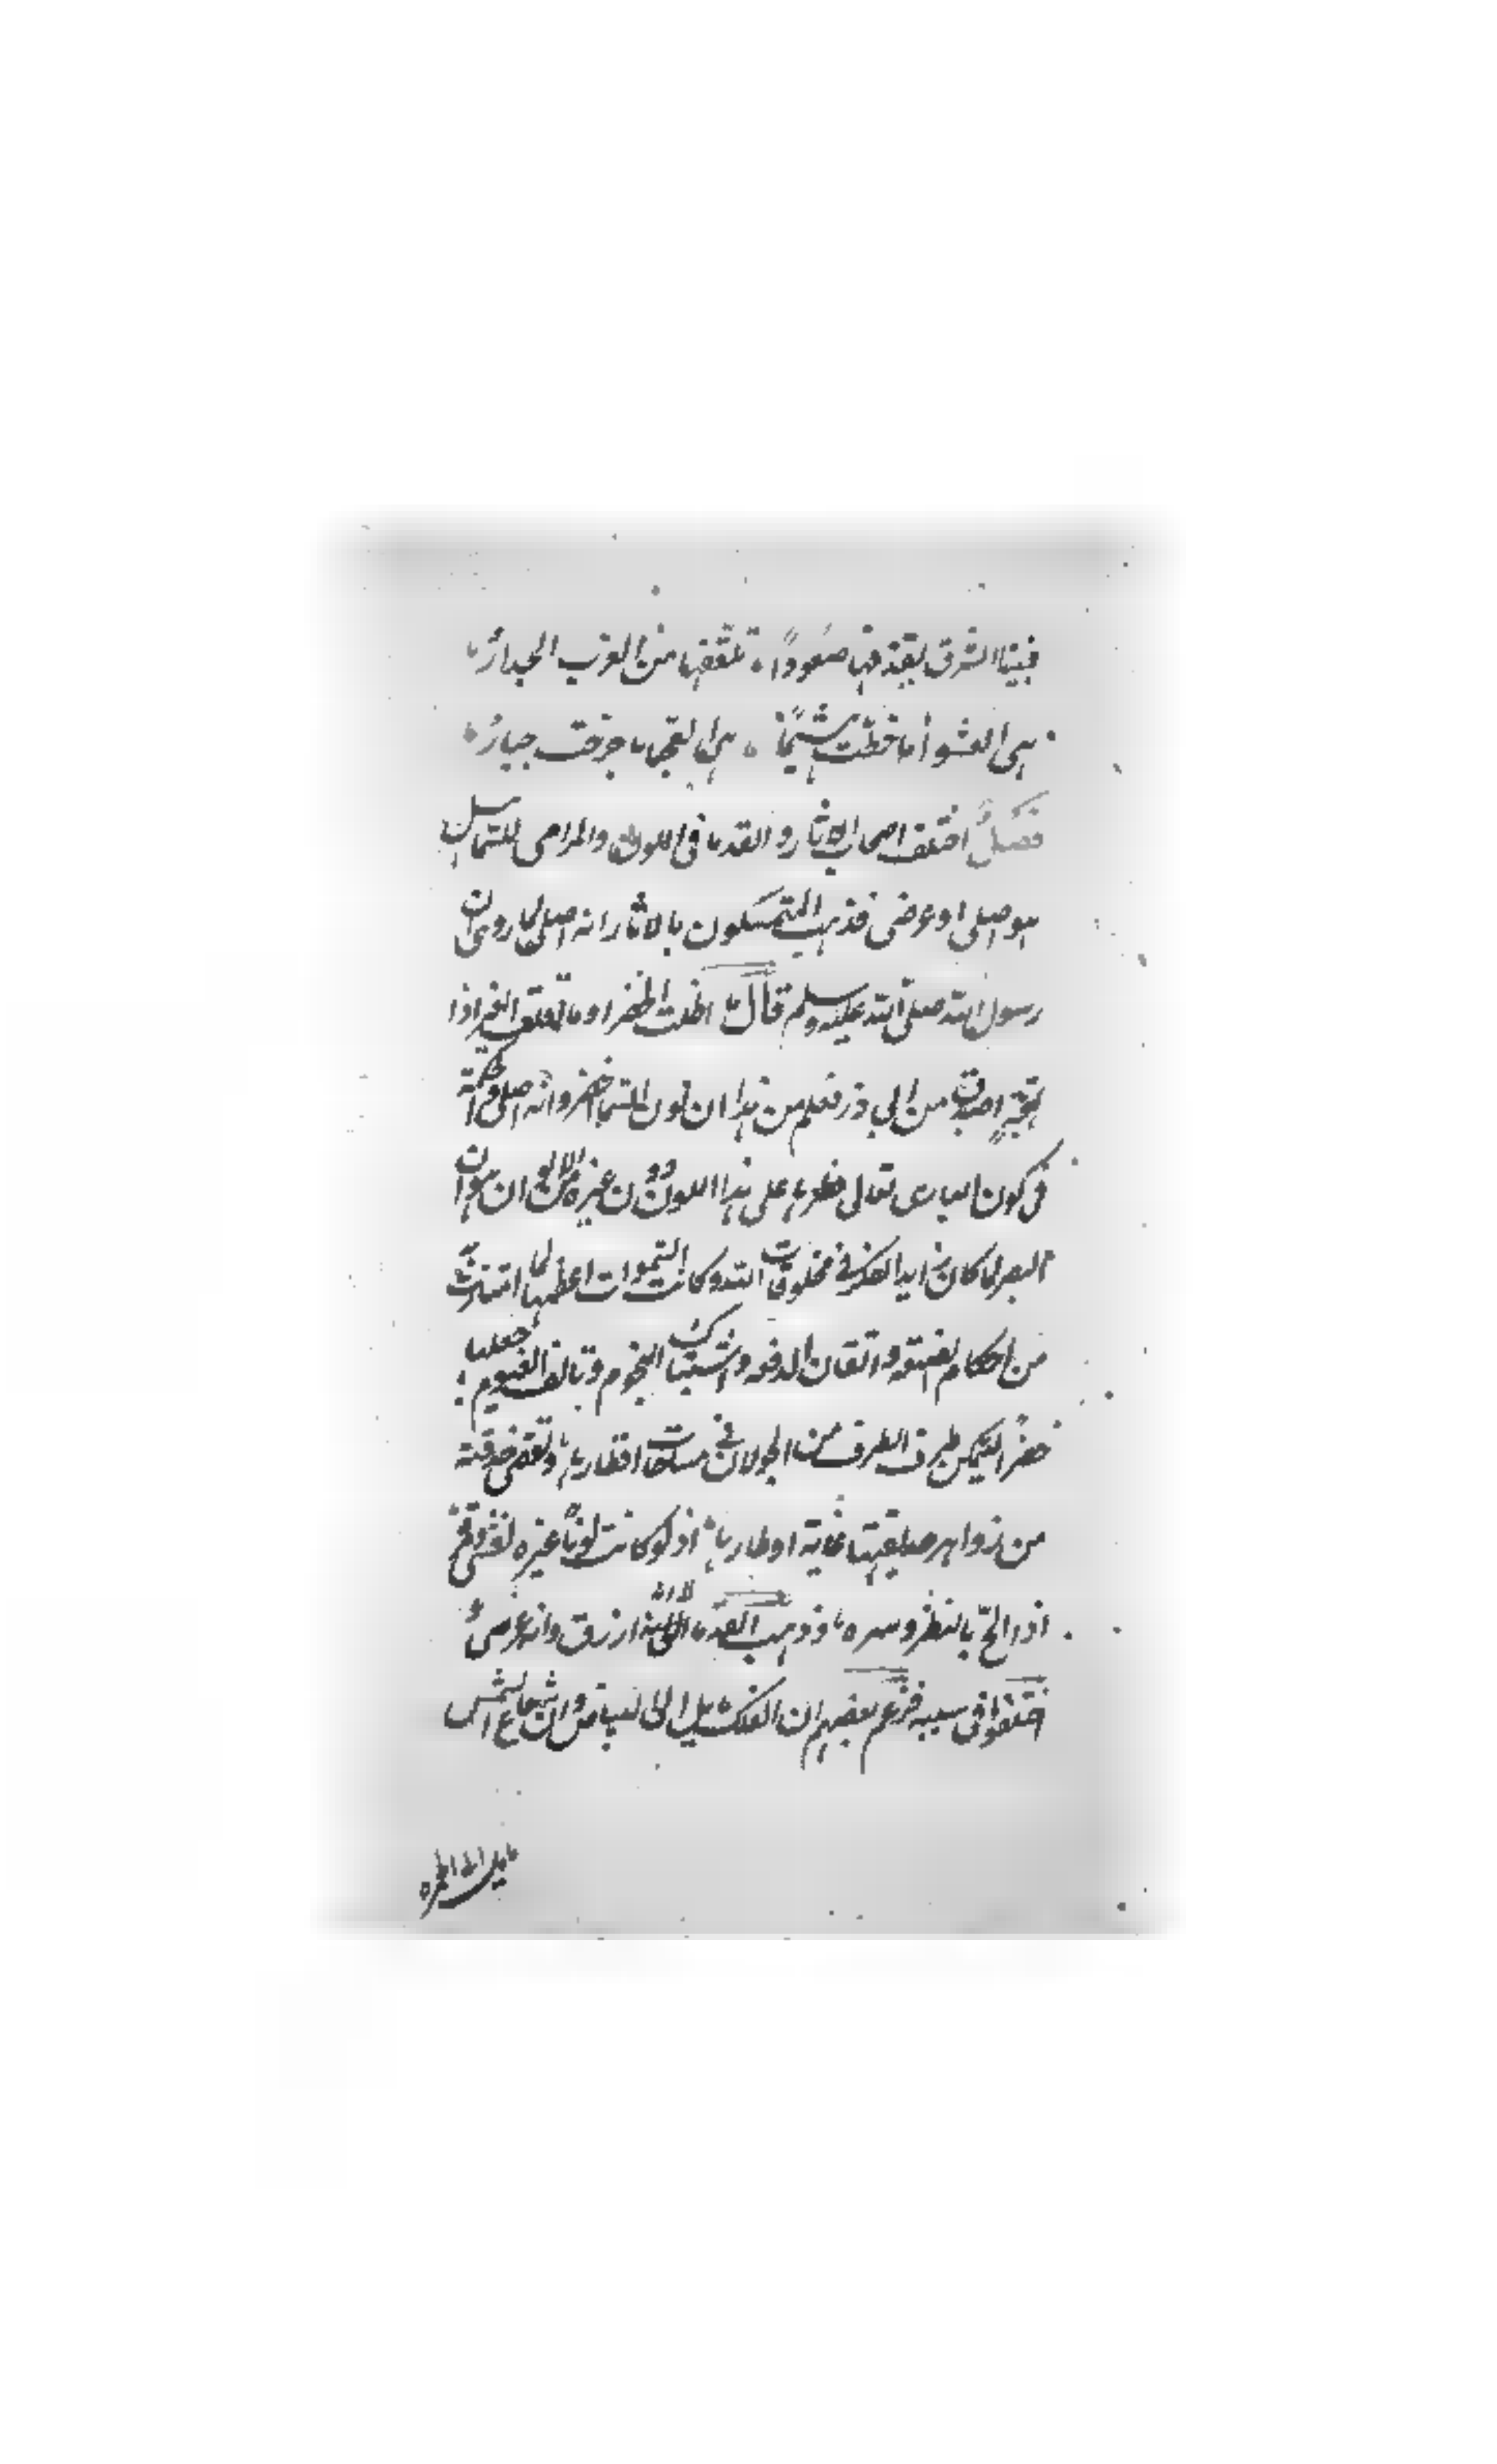 فبينا الشرق يقذفها صعودًا ، تلقفها من الغرب انحدار
هي العشوا ما خبطت هشيمًا ، هي العجماء ما جرحت جبار
فصل اختلف اصحاب الاثار والقدماء في اللون المرامى للسما هل
هو اصلى او عرضى فذهب المتمسكون بالاثار انه اصلى لما روى ان
رسول الله صلى الله عليه وسلم قال ما اظلت الخضرا وما اقلت الغبرا ذا
لهجة اصدق من ابي ذر فعلم من هذا ان لون السما اخضر وانه اصلى وحكمة
فى كون البارى تعالى فطرها على هذا اللون دون غيره من الالوان هو ان
البصر لما كان رايد الفكر في مخلوقات الله وكانت السموات اعظمها لما اشتملت
من احكام الصنعة واتقان الرفعة واشتباك النجوم وتالف الغيوم جعلها
خضرًا ليتمكن طرف الطرف من الجولان في مساحات اقطارها وتقضى حدقته
من زواهر حديقتها غاية اوطارها اذ لو كانت لونًا غيره لغشى وقمر
اذا الح بالنظر وسدر ، وذهب القدماء الى انه ازرق وانه عرضى
اختلفوا فى سببه فزعم بعضهم ان الفلك يميل الى البياض وان شعاع الشمس
مايل الى الحمره